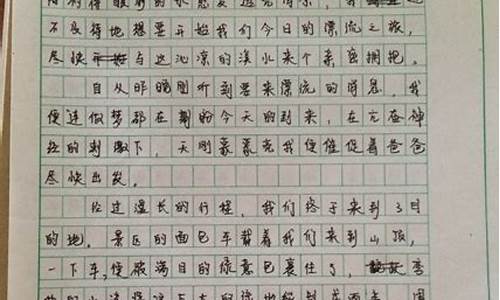 不及待地想要开始我们今日的漂流之旅,
尽快与这沁凉的溪水来个亲密拥抱。
自从昨晚刚听到要来漂流的消息,我
便连做梦都在期盼今天的到来,在亢奋神
经的刺激下,天刚蒙蒙亮我便催促着爸爸
尽快出发。
经过漫长的行程,我们终于来到了目
的地。景区的面包车载着我们来到山顶,
一下车,便被满目的绿意包裹住了,